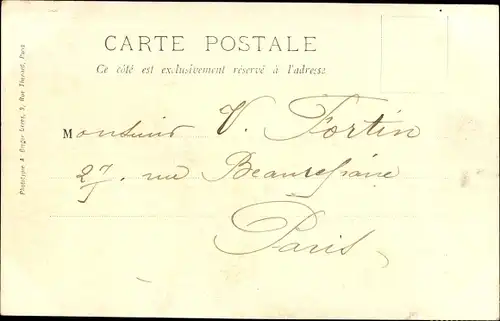 CARTE POSTALE
Ce côté est exclusivement réservé à l'adresse
Monsieur V. Fortin
27, rue Beaurepaire
Paris
Phototypie A Berger frères, 9, Rue Thénard, Paris